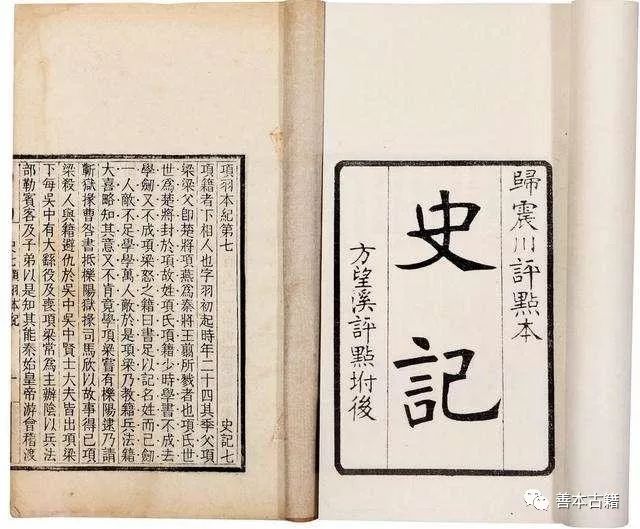 歸震川評點本
史記
方望溪評點坿後
項羽本紀第七
史記七
項籍者下相人也字羽初起時年二十四其季父項
梁梁父卽楚將項燕爲秦將王翦所戮者也項氏世
世爲楚將封於項故姓項氏項籍少時學書不成去
學劒又不成項梁怒之籍曰書足以記名姓而已劒
一人敵不足學學萬人敵於是項梁乃教籍兵法籍
大喜略知其意又不肯竟學項梁嘗有櫟陽逮乃請
蘄獄掾曹咎書抵櫟陽獄掾司馬欣以故事得已項
梁殺人與籍避仇於吳中吳中賢士大夫皆出項梁
下每吳中有大繇役及喪項梁常爲主辦陰以兵法
部勒賓客及子弟以是知其能秦始皇帝游會稽渡
善本古籍